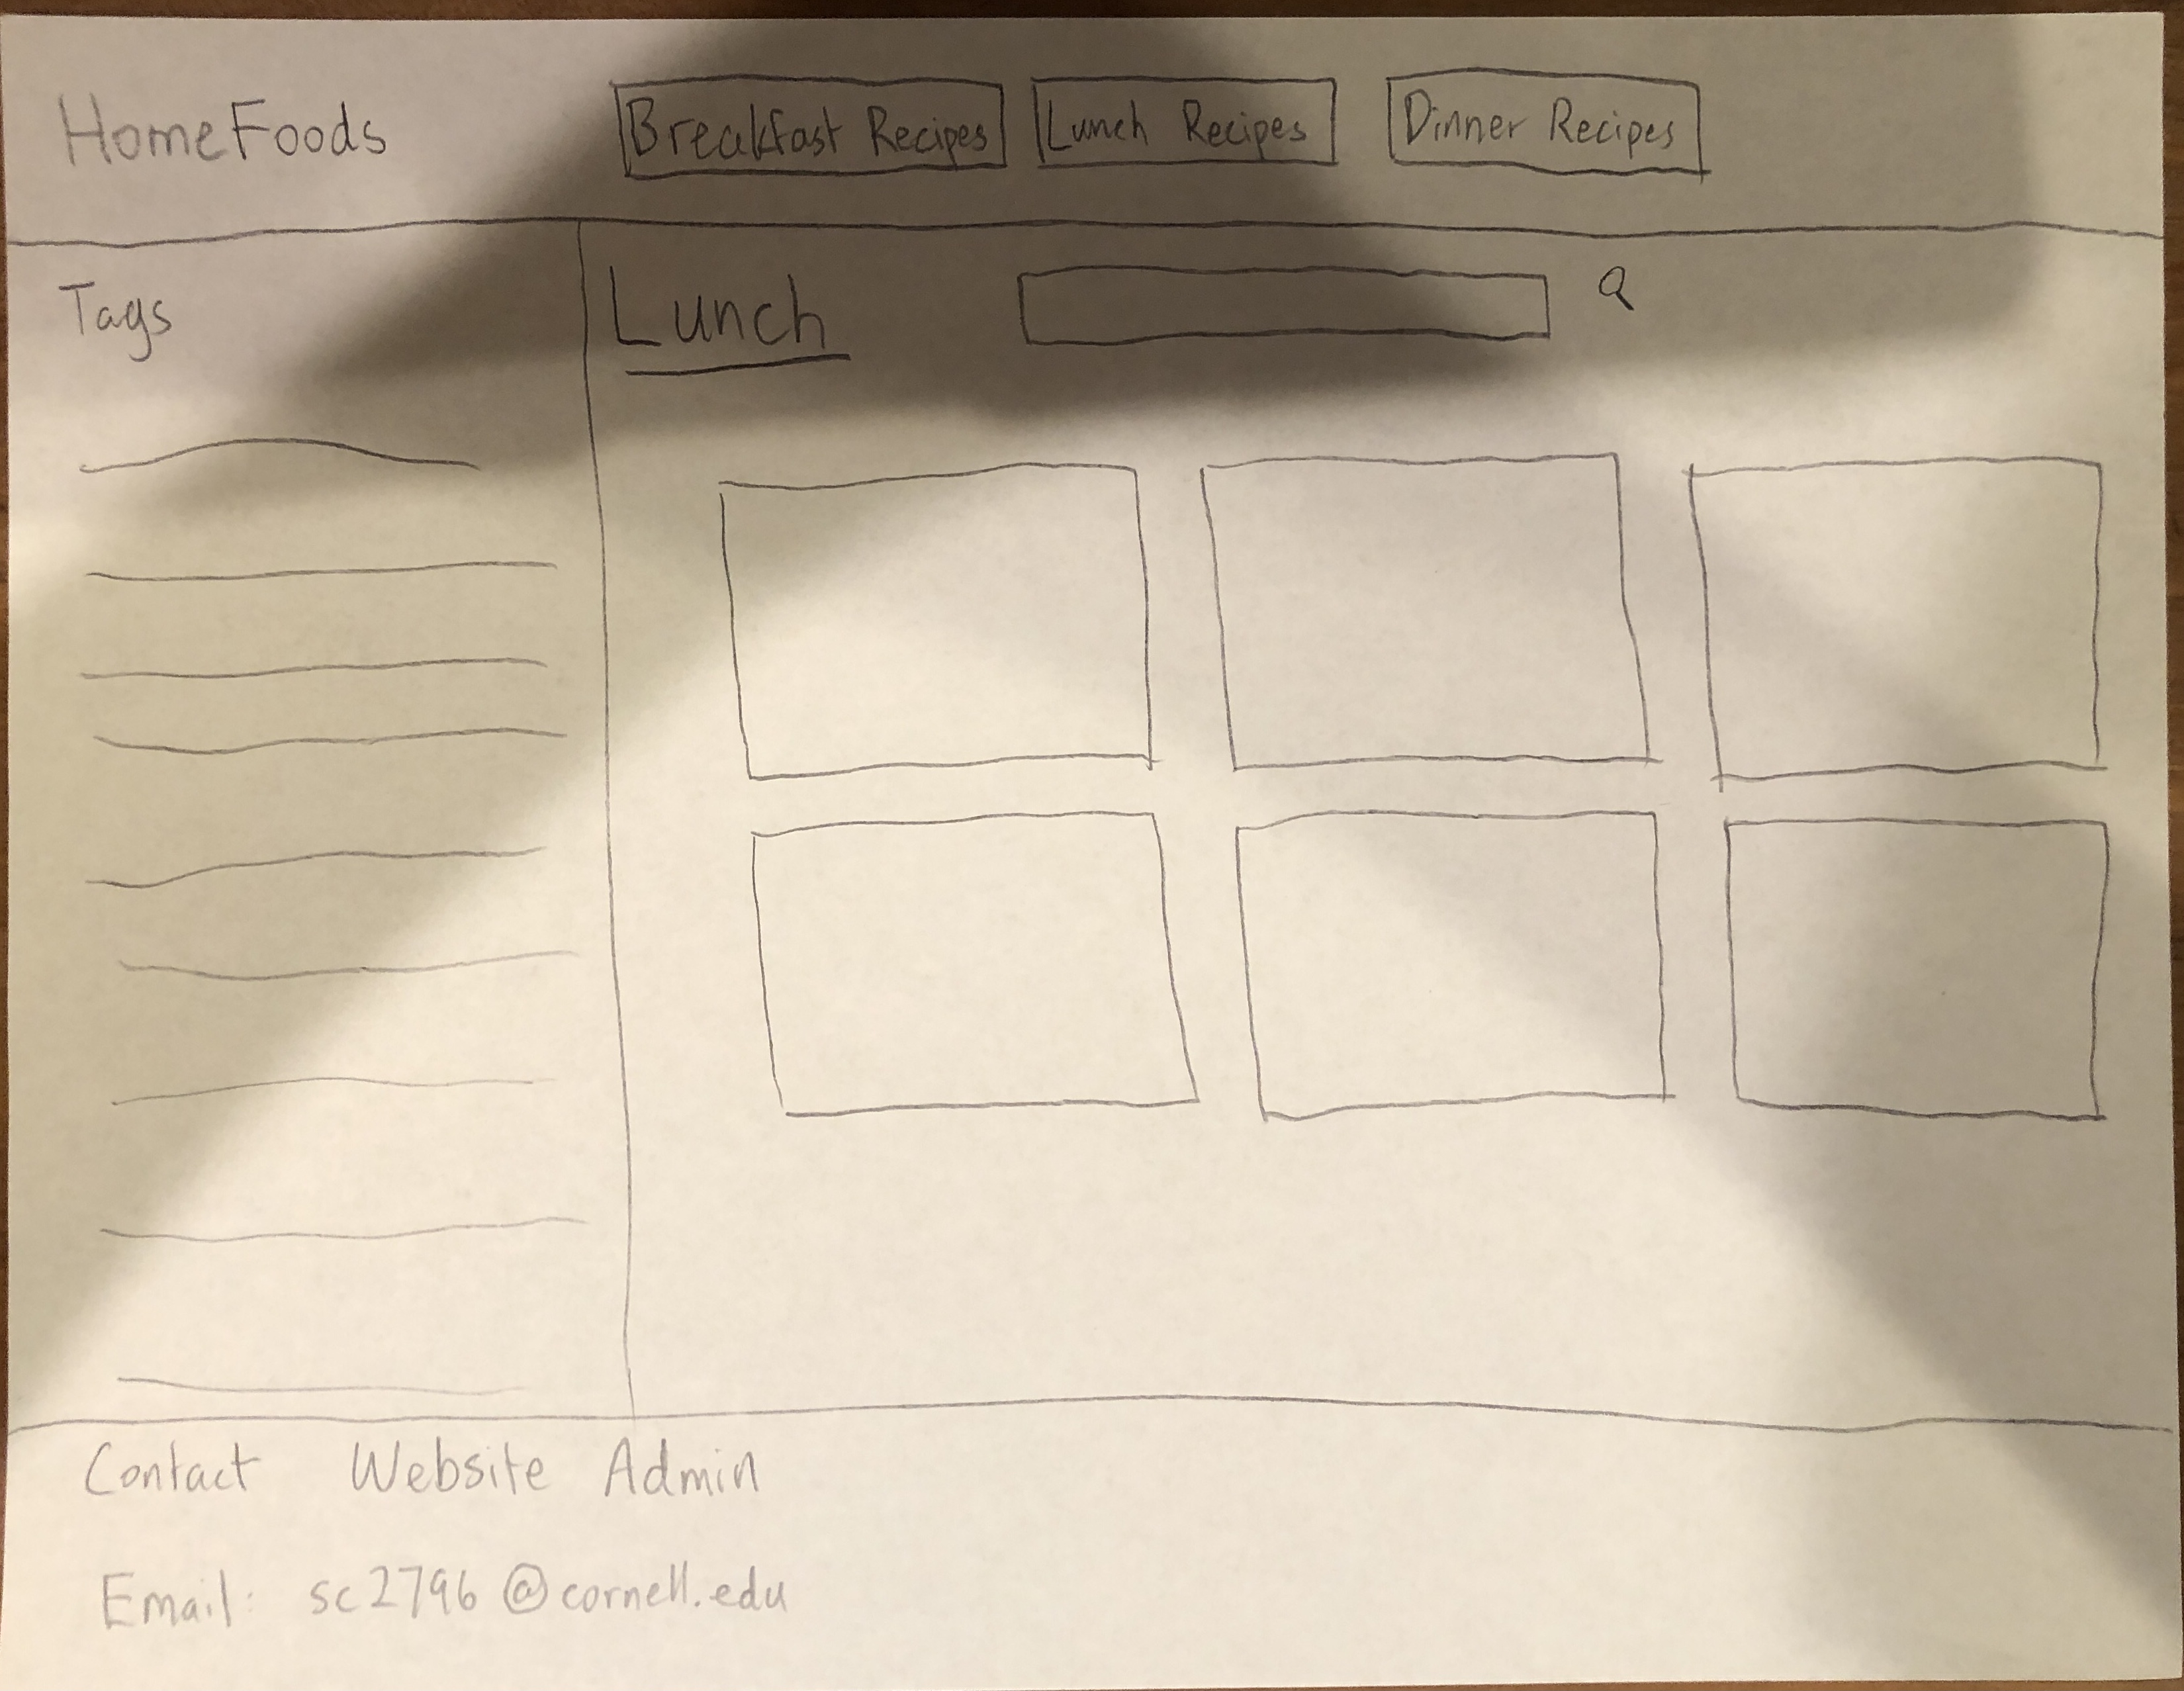 HomeFoods Breakfast Recipes Lunch Recipes Dinner Recipes
Tags
Lunch
Contact Website Admin
Email: sc2796@cornell.edu